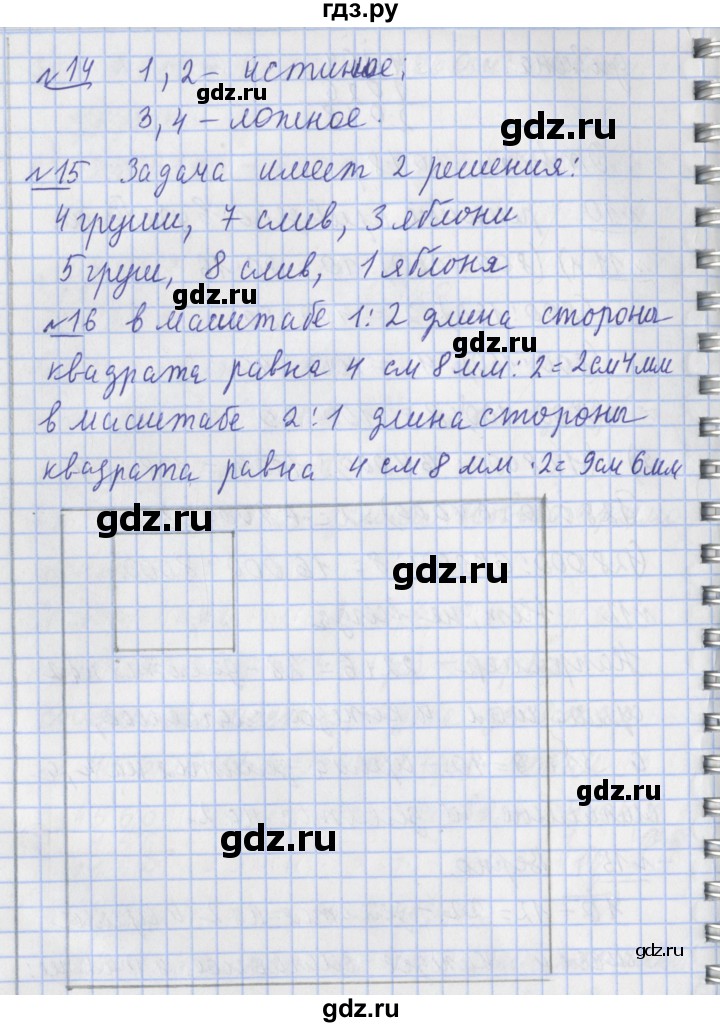 гдз.ру
№14 1, 2 – истинное;
gdz.ru
3, 4 – ложное.
gdz.ru
№15 Задача имеет 2 решения:
4 груши, 7 слив, 3 яблони
5 груш, 8 слив, 1 яблоня
gdz.ru
№16 в масштабе 1:2 длина стороны
gdz.ru
квадрата равна 4 см 8 мм : 2 = 2 см 4 мм
в масштабе 2:1 длина стороны
квадрата равна 4 см 8 мм · 2 = 9 см 6 мм
gdz.ru
gdz.ru
gdz.ru
gdz.ru
gdz.ru
gdz.ru